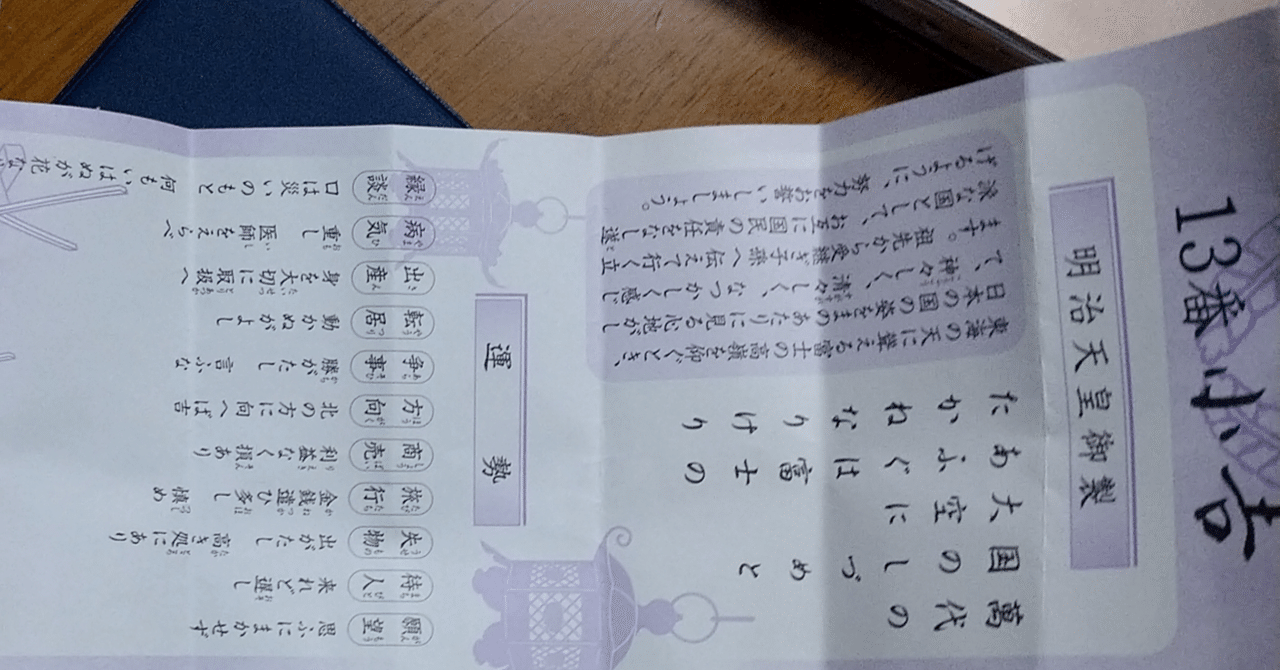 13番 小吉
明治天皇御製
萬代の
国のしづめと
大空に
あふぐは富士の
たかねなりけり
東海の天に聳える富士の高嶺を仰ぐとき、
日本の国の姿をまのあたりに見る心地がし
て、神々しく、清々しく、なつかしく感じ
ます。祖先から受継ぎ子孫へ伝えて行く立
派な国として、お互に国民の責任をなし遂
げるように、努力をお誓いしましょう。
運勢
願望 思ふにまかせず
待人 来れど遅し
失物 出がたし 高き処にあり
旅行 金銭遣ひ多し 慎め
商売 利益なく損あり
方向 北の方に向へば吉
争事 勝がたし 言ふな
転居 動かぬがよし
出産 身を大切に取扱へ
病気 重し 医師をえらべ
縁談 口は災いのもと 何もいはぬが花な